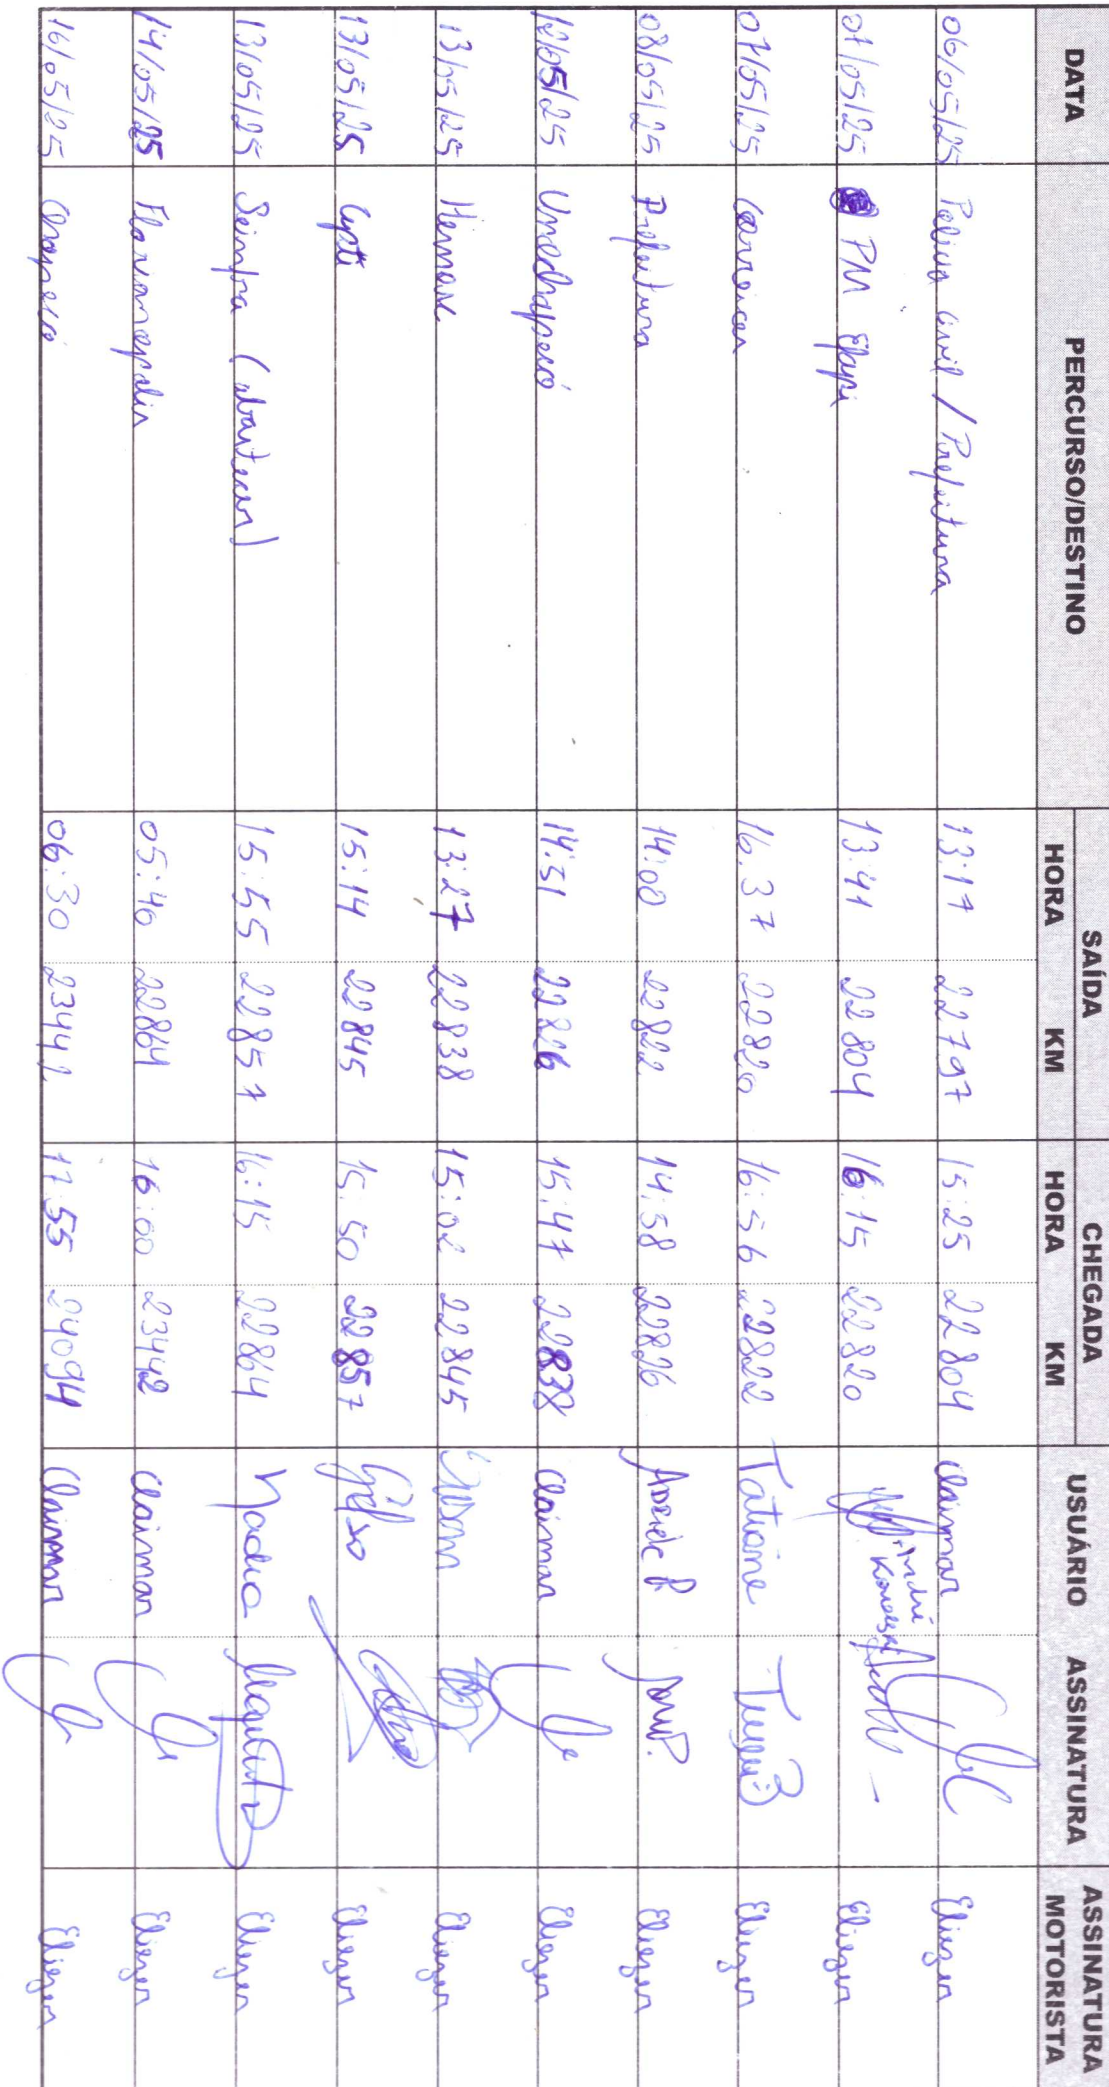 DATA PERCURSO/DESTINO SAÍDA CHEGADA USUÁRIO ASSINATURA ASSINATURA MOTORISTA
HORA KM HORA KM
06/05/25 Policia Civil / Prefeitura 13:17 22797 15:25 22804 Claimar Eliezer
07/05/25 PM Efapi 13:41 22804 16:15 22820 Eliezer
07/05/25 Carreiras 16:37 22820 16:56 22822 Tatiane Eliezer
08/05/25 Prefeitura 14:00 22822 14:58 22826 Eliezer
12/05/25 Unochapecó 14:51 22826 15:47 22838 Claimar Eliezer
13/05/25 13:27 22838 15:02 22845 Eliezer
13/05/25 15:14 22845 15:50 22857 Eliezer
13/05/25 Seinfra (abastecer) 15:55 22857 16:15 22864 Nadia Eliezer
14/05/25 Florianopolis 05:40 22864 16:00 23442 Claimar Eliezer
16/05/25 Chapecó 06:30 23442 17:55 24094 Claimar Eliezer